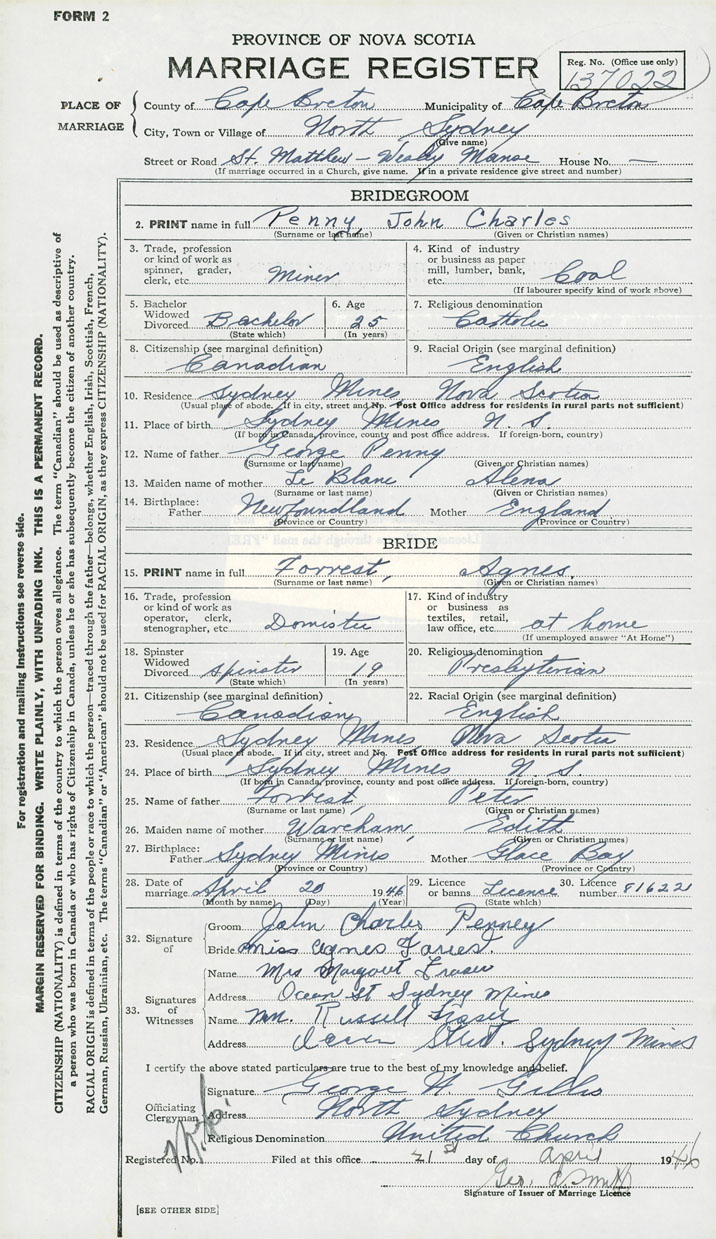 FORM 2
PROVINCE OF NOVA SCOTIA
MARRIAGE REGISTER
Reg. No. (Office use only)
137022
PLACE OF MARRIAGE
County of Cape Breton Municipality of Cape Breton
City, Town or Village of North Sydney
(Give name)
Street or Road St. Matthew - Wesley Manse House No. —
(If marriage occurred in a Church, give name. If in a private residence give street and number)
BRIDEGROOM
2. PRINT name in full Penny John Charles
(Surname or last name) (Given or Christian names)
3. Trade, profession or kind of work as spinner, grader, clerk, etc. Miner
4. Kind of industry or business as paper mill, lumber, bank, etc. Coal
(If labourer specify kind of work above)
5. Bachelor Widowed Divorced Bachelor
(State which)
6. Age 25
(In years)
7. Religious denomination Catholic
8. Citizenship (see marginal definition) Canadian
9. Racial Origin (see marginal definition) English
10. Residence Sydney Mines, Nova Scotia
(Usual place of abode. If in city, street and No. Post Office address for residents in rural parts not sufficient)
11. Place of birth Sydney Mines N. S.
(If born in Canada, province, county and post office address. If foreign-born, country)
12. Name of father George Penny
(Surname or last name) (Given or Christian names)
13. Maiden name of mother Le Blanc Alena
(Surname or last name) (Given or Christian names)
14. Birthplace: Father Newfoundland Mother England
(Province or Country) (Province or Country)
BRIDE
15. PRINT name in full Forrest, Agnes.
(Surname or last name) (Given or Christian names)
16. Trade, profession or kind of work as operator, clerk, stenographer, etc. Domistic
17. Kind of industry or business as textiles, retail, law office, etc. at home
(If unemployed answer "At Home")
18. Spinster Widowed Divorced spinster
(State which)
19. Age 19
(In years)
20. Religious denomination Presbyterian
21. Citizenship (see marginal definition) Canadian
22. Racial Origin (see marginal definition) English
23. Residence Sydney Mines Nova Scotia
(Usual place of abode. If in city, street and No. Post Office address for residents in rural parts not sufficient)
24. Place of birth Sydney Mines N. S.
(If born in Canada, province, county and post office address. If foreign-born, country)
25. Name of father Forrest, Peter
(Surname or last name) (Given or Christian names)
26. Maiden name of mother Wareham, Edith
(Surname or last name) (Given or Christian names)
27. Birthplace: Father Sydney Mines Mother Glace Bay
(Province or Country) (Province or Country)
28. Date of marriage April 20 1946
(Month by name) (Day) (Year)
29. Licence or banns Licence
(State which)
30. Licence number 81622
32. Signature of
Groom John Charles Penney
Bride Miss Agnes Forrest.
33. Signatures of Witnesses
Name Mrs Margaret Fraser
Address Ocean St Sydney Mines
Name Mr. Russell Fraser
Address Ocean Street. Sydney Mines
I certify the above stated particulars are true to the best of my knowledge and belief.
Officiating Clergyman
Signature George W Gillis
Address North Sydney
Religious Denomination United Church
Registered No. Filed at this office 21st day of April 1946
Geo. Smith
Signature of Issuer of Marriage Licence
[SEE OTHER SIDE]
For registration and mailing instructions see reverse side.
MARGIN RESERVED FOR BINDING. WRITE PLAINLY, WITH UNFADING INK. THIS IS A PERMANENT RECORD.
CITIZENSHIP (NATIONALITY) is defined in terms of the country to which the person owes allegiance. The term "Canadian" should be used as descriptive of
a person who was born in Canada or who has rights of Citizenship in Canada, unless he or she has subsequently become the citizen of another country.
RACIAL ORIGIN is defined in terms of the people or race to which the person—traced through the father—belongs, whether English, Irish, Scottish, French,
German, Russian, Ukrainian, etc. The terms "Canadian" or "American" should not be used for RACIAL ORIGIN, as they express CITIZENSHIP (NATIONALITY).